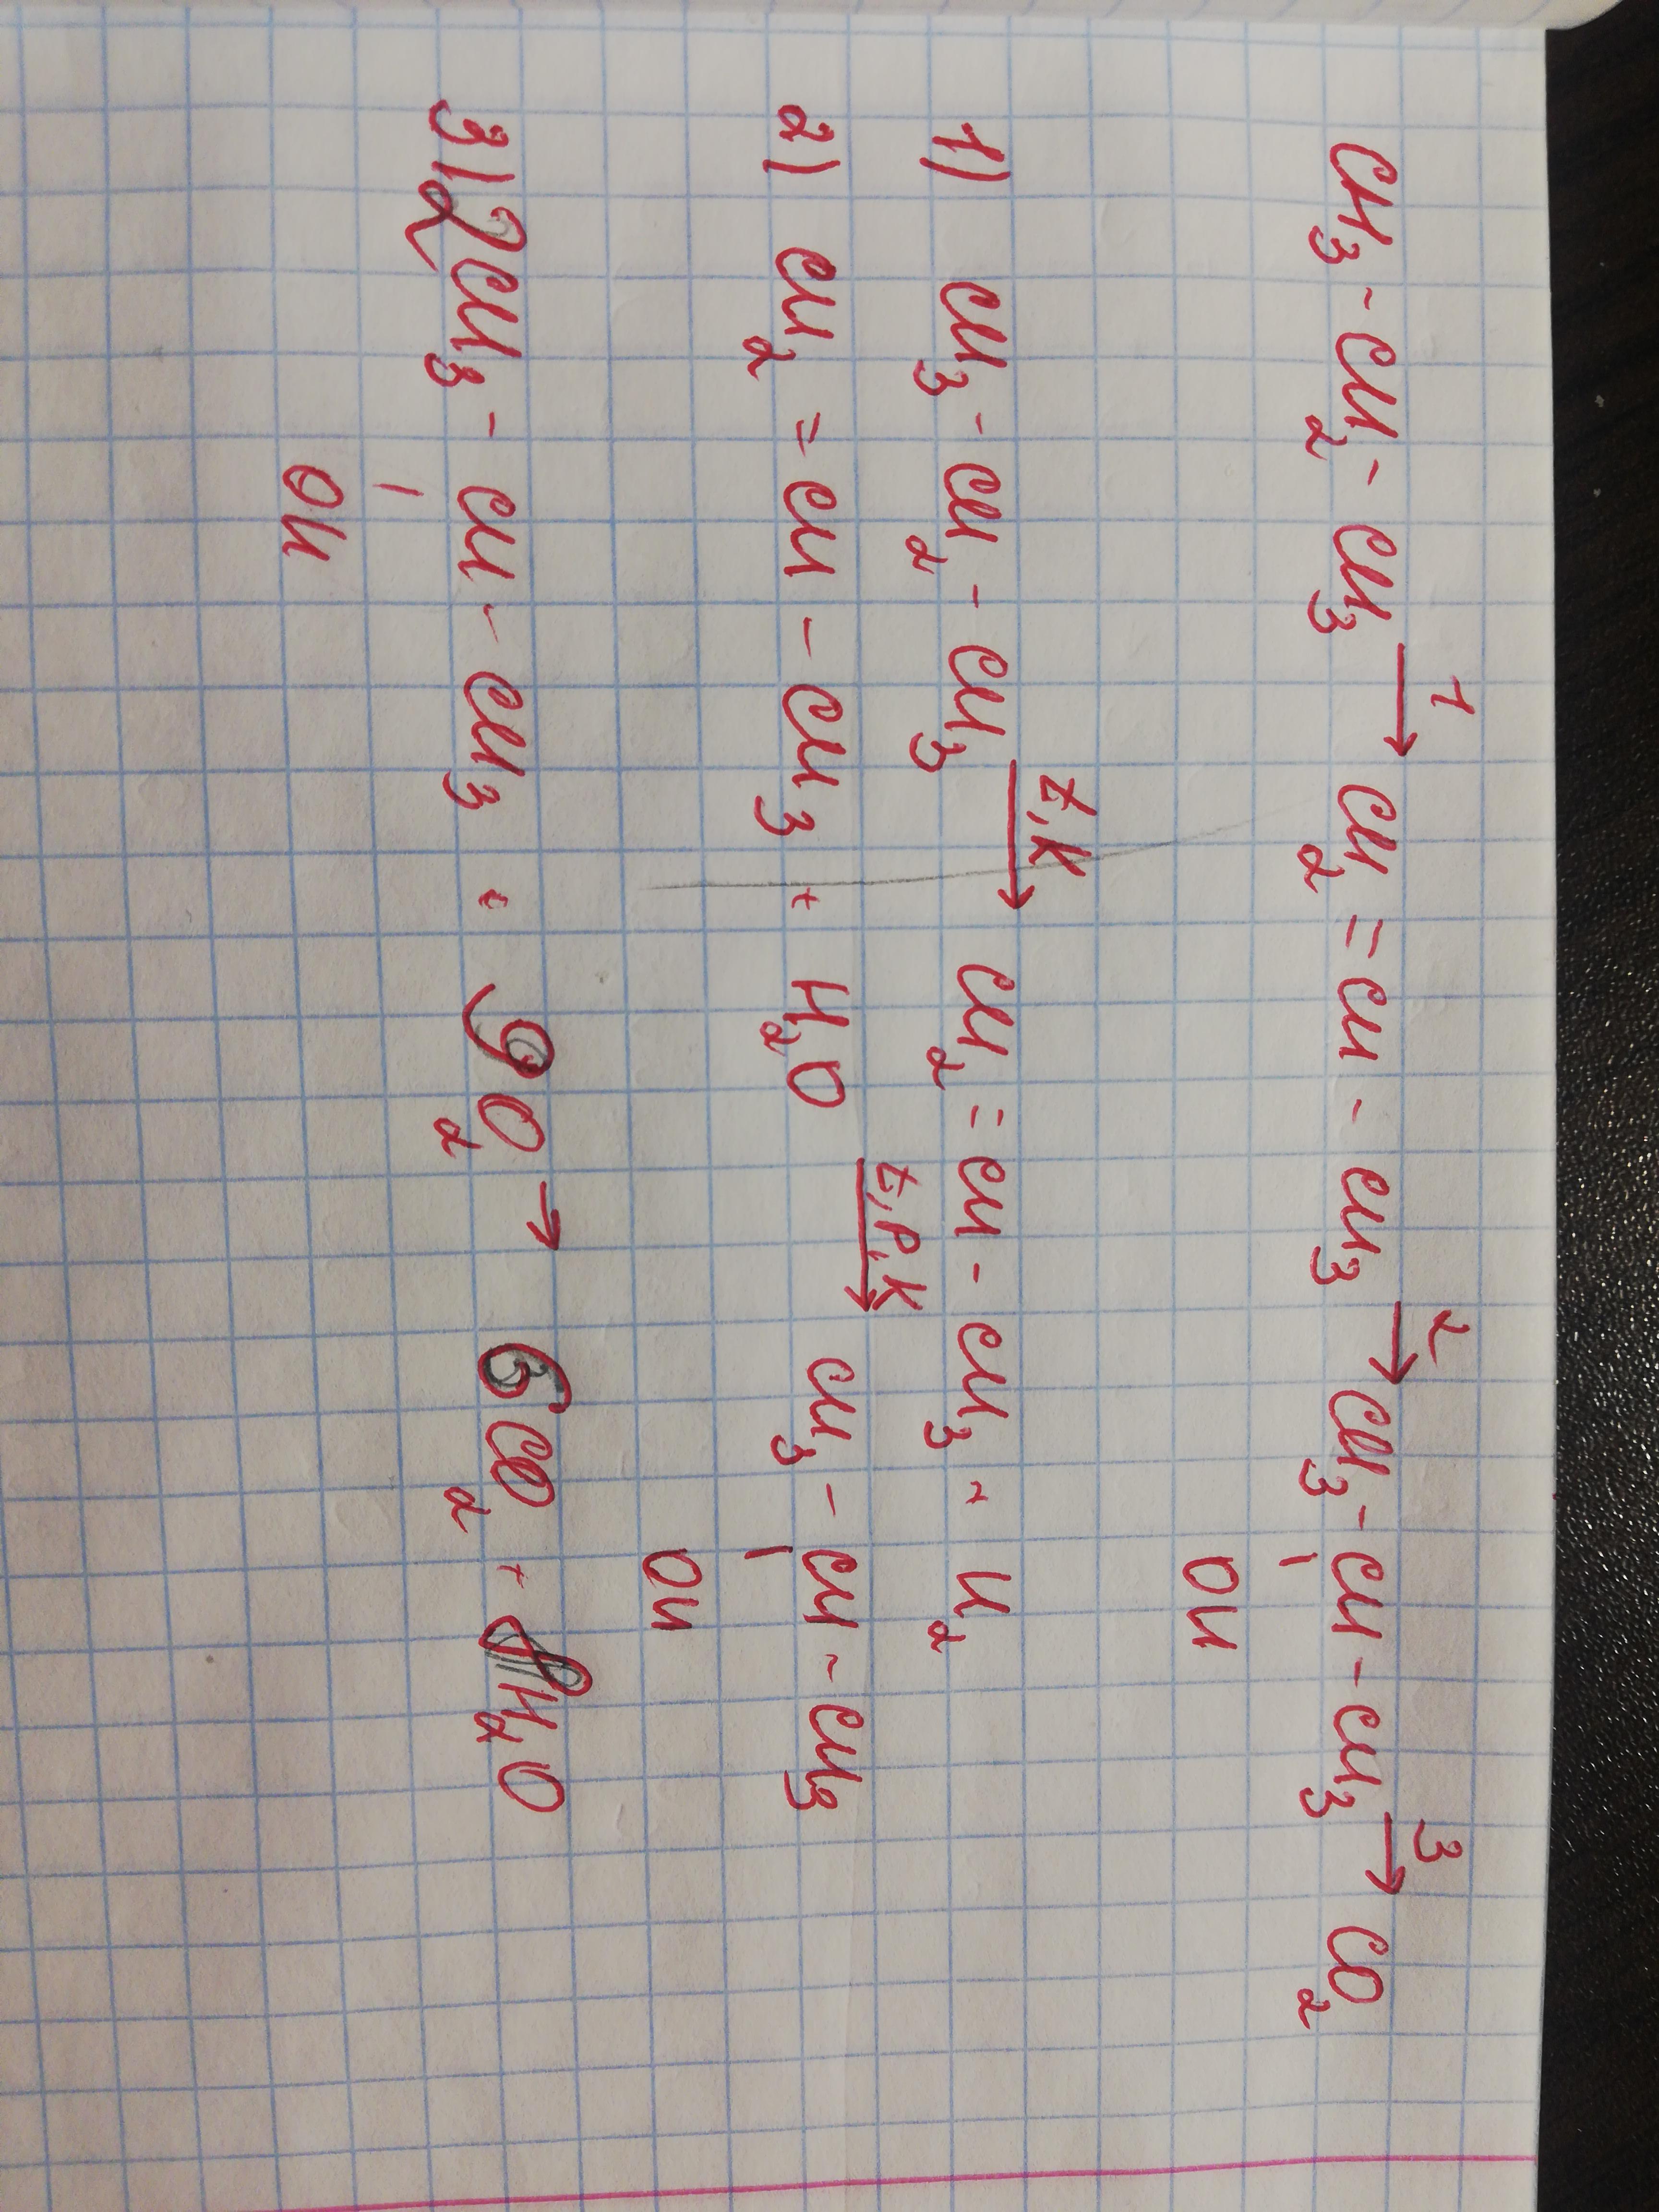 CH₃ - CH₂ - CH₃ →¹ CH₂ = CH - CH₃ →² CH₃ - CH - CH₃ →³ CO₂
OH
1) CH₃ - CH₂ - CH₃ →ᵗ,ᴷ CH₂ = CH - CH₃ + H₂
2) CH₂ = CH - CH₃ + H₂O →ᵗ,ᴾ,ᴷ CH₃ - CH - CH₃
OH
3) 2CH₃ - CH - CH₃ + 9O₂ → 6CO₂ + 8H₂O
OH